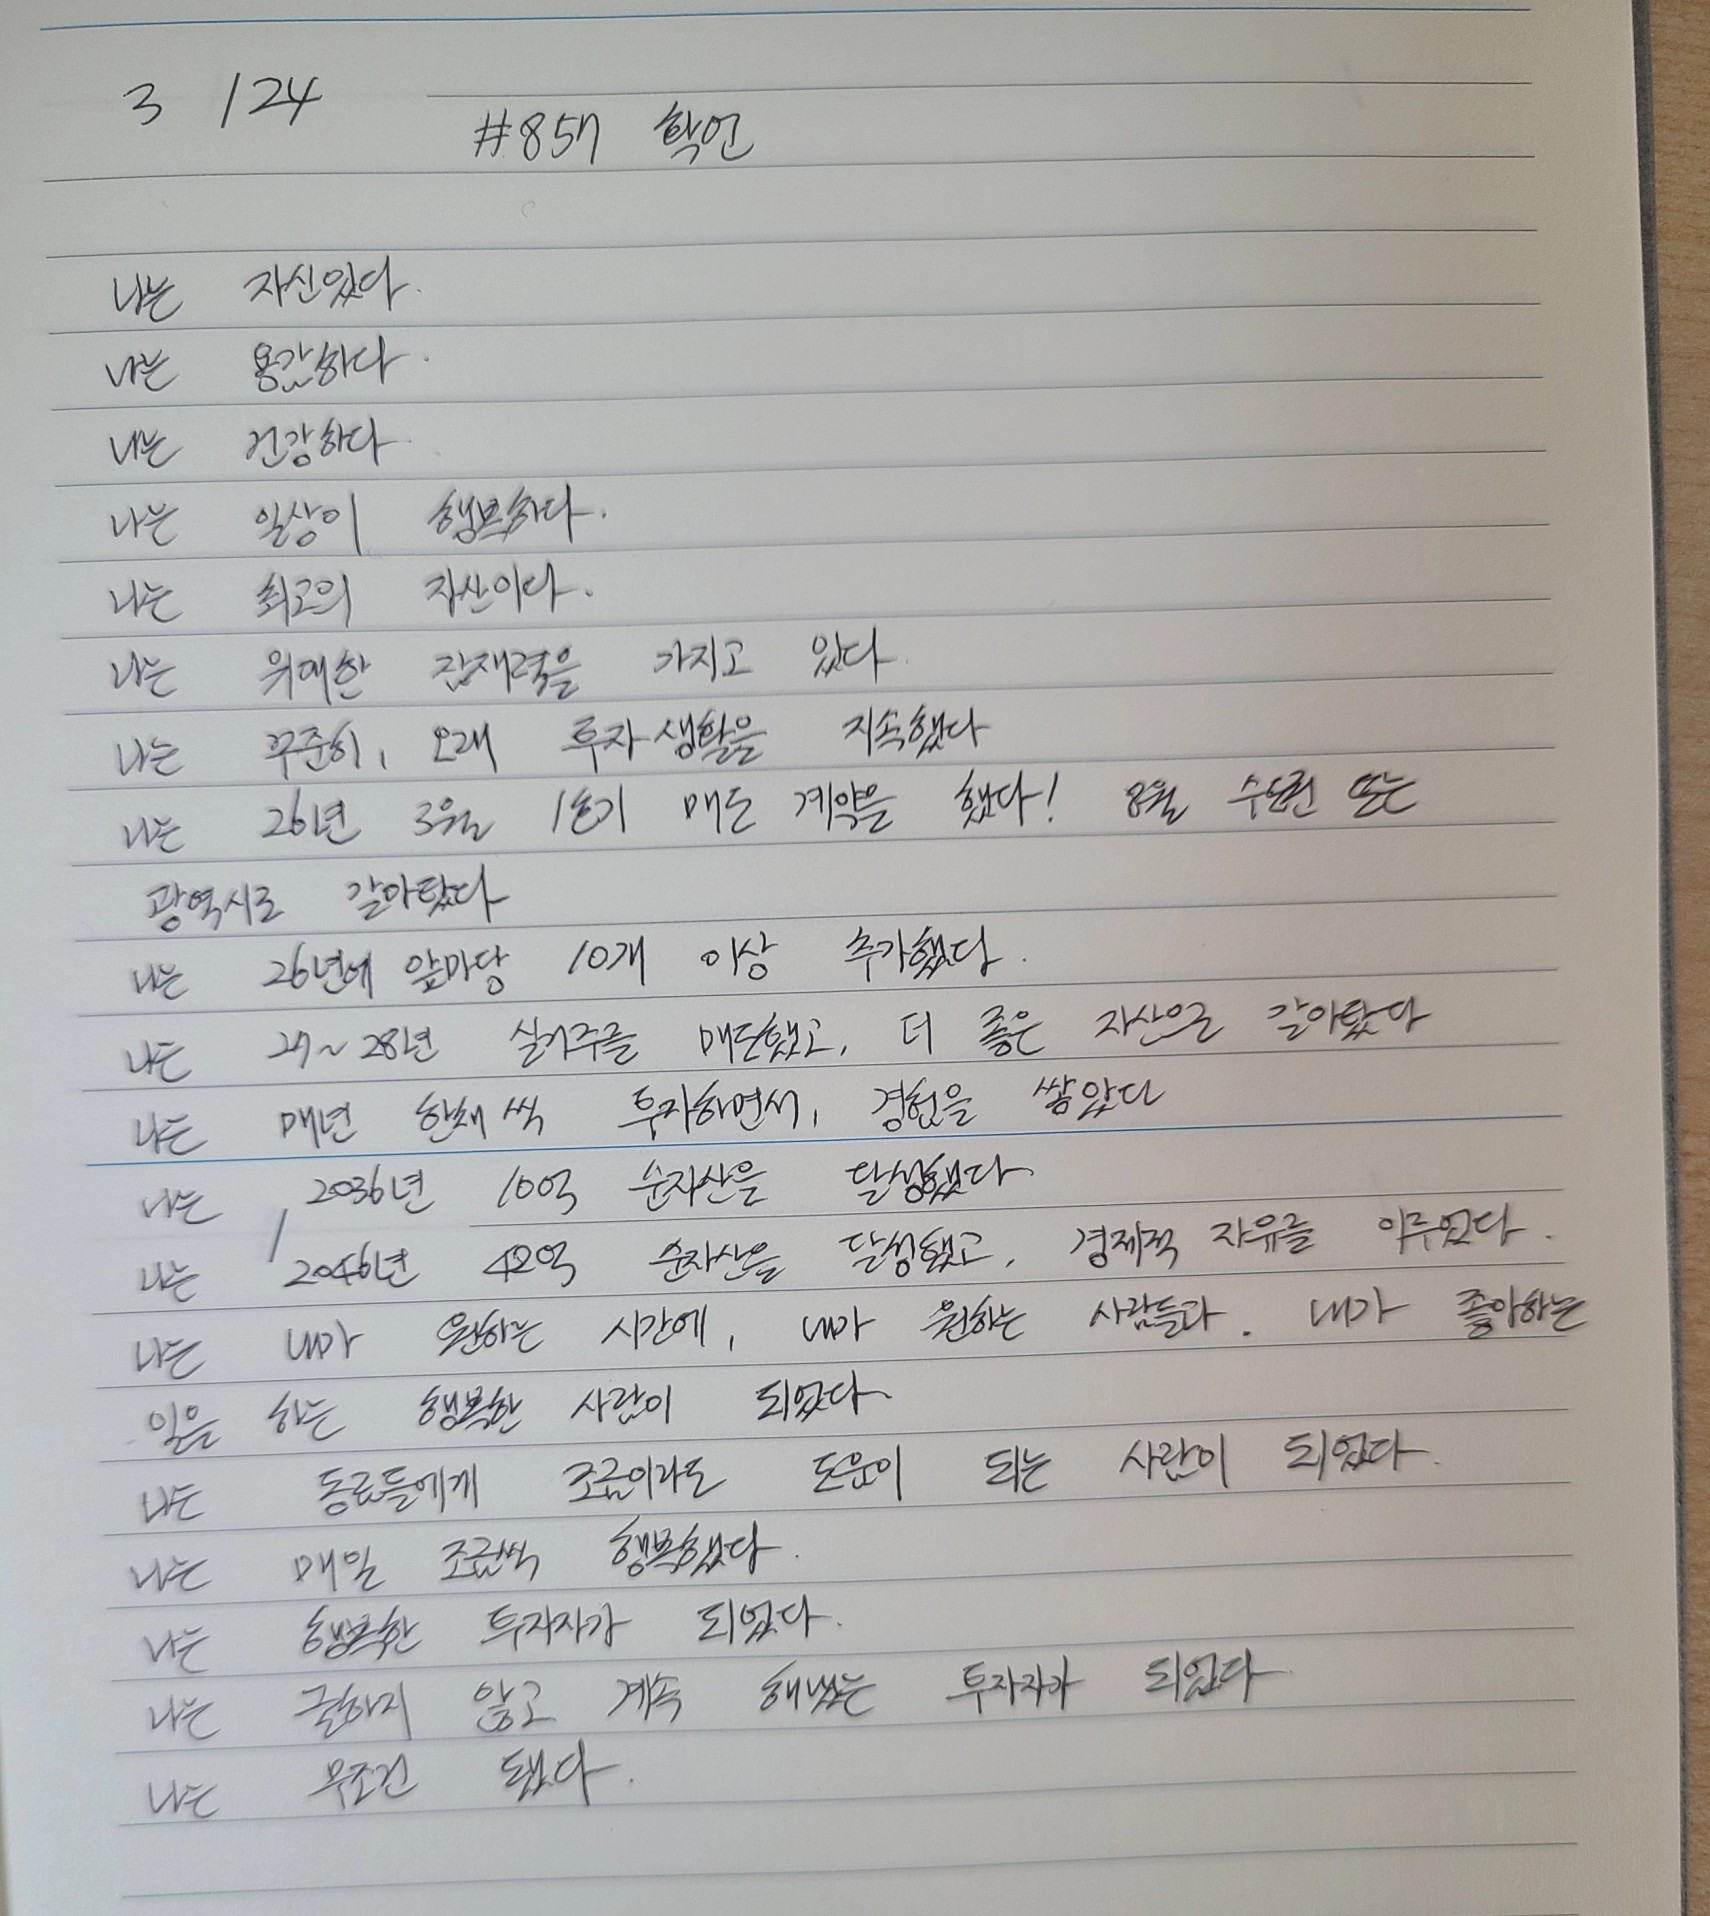 3 / 24
#857 확언
나는 자신있다.
나는 용감하다.
나는 건강하다.
나는 일상이 행복하다.
나는 최고의 자산이다.
나는 위대한 잠재력을 가지고 있다.
나는 꾸준히, 오래 투자생활을 지속했다
나는 26년 3월 1호기 매도 계약을 했다! 8월 수도권 또는
광역시로 갈아탔다
나는 26년에 앞마당 10개 이상 추가했다.
나는 27~28년 실거주를 매도했고, 더 좋은 자산으로 갈아탔다
나는 매년 한채씩 투자하면서, 경험을 쌓았다
나는 2036년 10억 순자산을 달성했다.
나는 2046년 42억 순자산을 달성했고, 경제적 자유를 이루었다.
나는 내가 원하는 시간에, 내가 원하는 사람들과. 내가 좋아하는
일을 하는 행복한 사람이 되었다.
나는 동료들에게 조금이라도 도움이 되는 사람이 되었다.
나는 매일 조금씩 행복했다.
나는 행복한 투자자가 되었다.
나는 굴하지 않고 계속 해내는 투자자가 되었다.
나는 무조건 됐다.